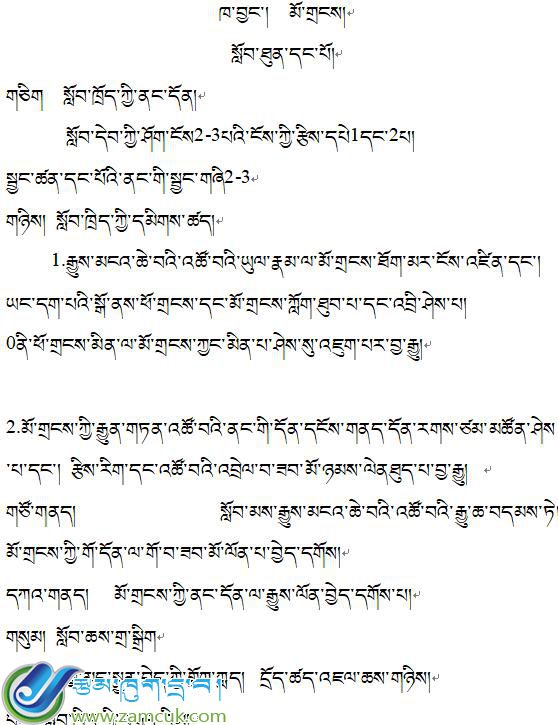 ཁ་བྱང་།   མོ་གྲངས།
སློབ་ཐུན་དང་པོ།
གཅིག   སློབ་ཁྲིད་ཀྱི་ནང་དོན།
སློབ་དེབ་ཀྱི་ཤོག་ངོས2-3པའི་ངོས་ཀྱི་རྩིས་དཔེ1དང་2པ།
སྦྱང་ཚན་དང་པོའི་ནང་གི་སྦྱང་གཞི2-3
གཉིས། སློབ་ཁྲིད་ཀྱི་དམིགས་ཚད།
1.རྒྱུས་མངའ་ཆེ་བའི་འཚོ་བའི་ཡུལ་རྣམ་ལ་མོ་གྲངས་ཐོག་མར་ངོས་འཛིན་དང་།
ཡང་དག་པའི་སྒོ་ནས་ཕོ་གྲངས་དང་མོ་གྲངས་ཀློག་ཐུབ་པ་དང་འབྲི་ཤེས་པ།
0ནི་ཕོ་གྲངས་མིན་ལ་མོ་གྲངས་ཀྱང་མིན་པ་ཤེས་སུ་འཇུག་པར་བྱ་རྒྱུ།
2.མོ་གྲངས་ཀྱི་རྒྱུན་གཏན་འཚོ་བའི་ནང་གི་དོན་དངོས་གནད་དོན་རགས་ཙམ་མཚོན་ཤེས
་པ་དང་། རྩིས་རིག་དང་འཚོ་བའི་འབྲེལ་བ་ཟབ་མོ་ཉམས་ལེན་ཐུད་པ་བྱ་རྒྱུ།
གཙོ་གནད།   སློབ་མས་རྒྱུས་མངའ་ཆེ་བའི་འཚོ་བའི་རྒྱུ་ཆ་བདམས་ཏེ
མོ་གྲངས་ཀྱི་གོ་དོན་ལ་གོ་བ་ཟབ་མོ་ལོན་པ་བྱེད་དགོས།
དཀའ་གནད།   མོ་གྲངས་ཀྱི་ནང་དོན་ལ་རྒྱུས་ལོན་བྱེད་དགོས་པ།
གསུམ། སློབ་ཆས་གྲ་སྒྲིག
དྲོད་ཚད་འཇལ་ཆས་གཉིས།
www.zamcuk.com